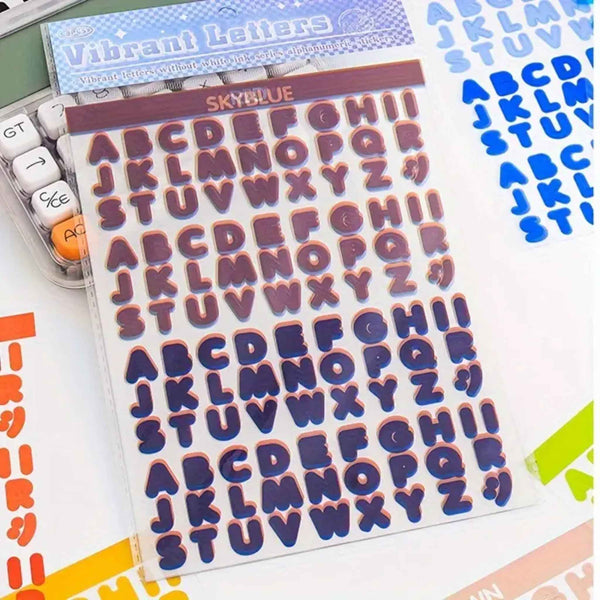 Vibrant Letters
Vibrant letters without white ink series alphanumeric stickers
SKYBLUE
ABCDEFGHII
JKLMNOPQR
STUVWXYZツ
ABCDEFGHII
JKLMNOPQR
STUVWXYZツ
ABCDEFGHII
JKLMNOPQR
STUVWXYZツ
ABCDEFGHII
JKLMNOPQR
STUVWXYZツ
GT
→
C/CE
JKLM
STUV
ABCDE
JKLM
STU
ABC
JKL
STU
WN